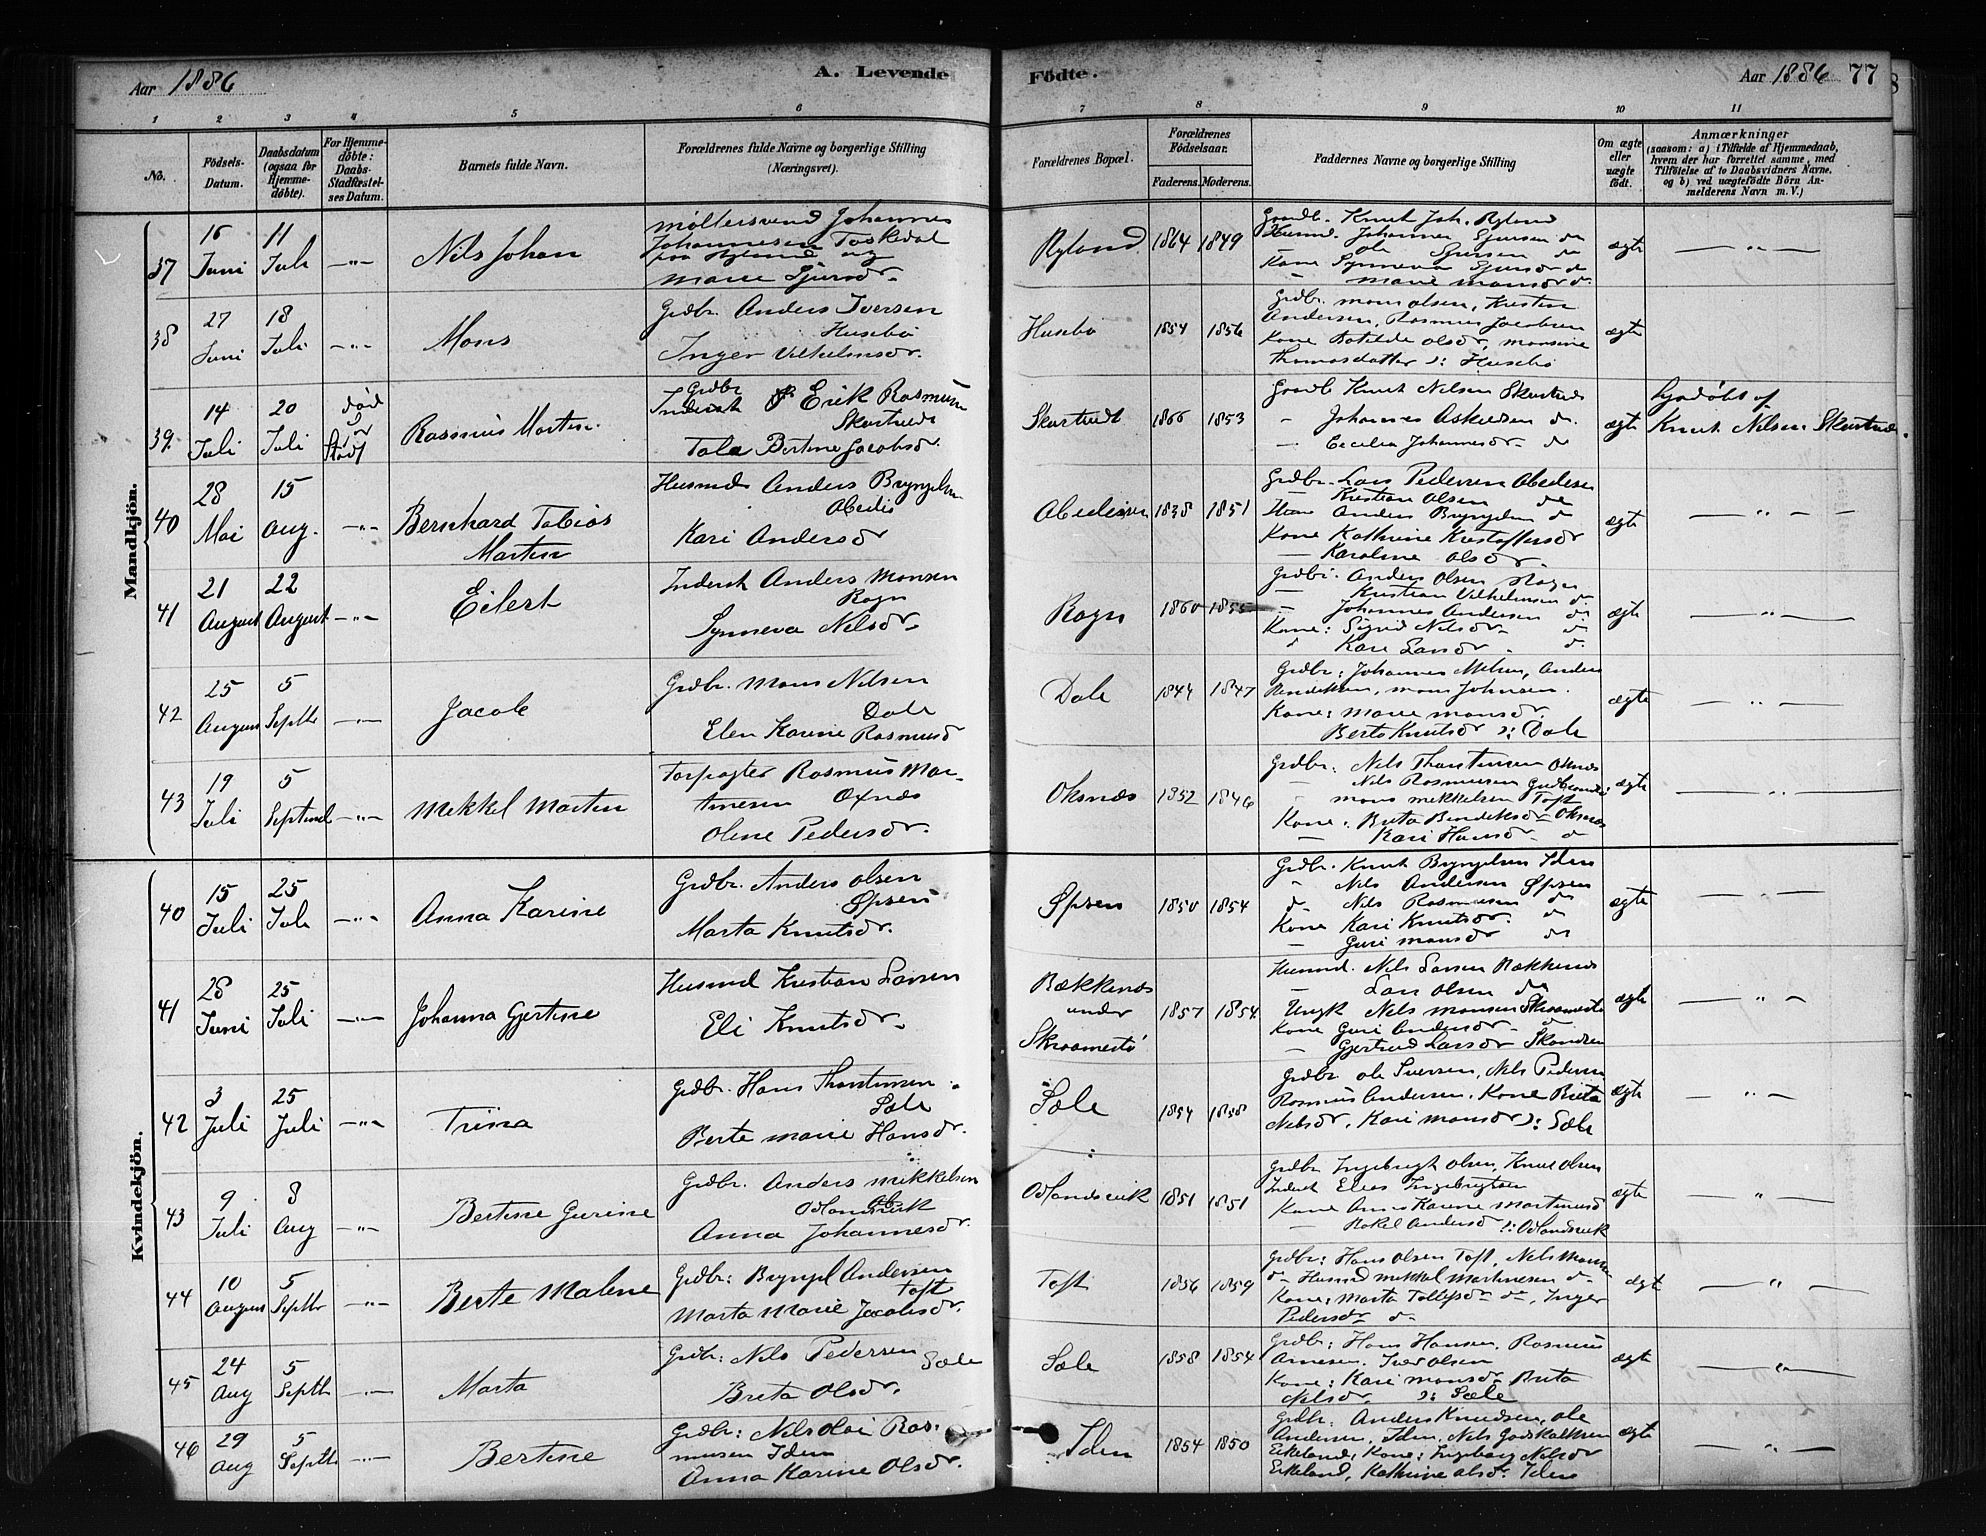 Aar 1886
A. Levende Fødte.
Aar 1886 77
1 2 3 4 5 6 7 8 9 10 11
No.
Fødsels-Datum.
Daabsdatum (ogsaa for Hjemmedøbte).
For Hjemmedøbte: Daabs-Stadfæstelses Datum.
Barnets fulde Navn.
Forældrenes fulde Navne og borgerlige Stilling (Næringsvei).
Forældrenes Bopæl.
Forældrenes Fødselsaar.
Faderens. Moderens.
Faddernes Navne og borgerlige Stilling
Om ægte eller uægte født.
Anmærkninger
(saasom: a) i Tilfælde af Hjemmedaab, hvem der har forrettet samme, med Tilføielse af to Daabsvidners Navne, og b) ved uægtefødte Børn Anmelderens Navn m. V.)
Mandkjön.
37 16 Juni 11 Juli —"— Nils Johan
Møllersvend Johannes
Johannesen Toskedal
fra Ryland og
Marie Sjursdr.
Ryland 1864 1849
Gaardb. Knut Joh. Ryland
Husmd. Johannes Sjursen do
Ole Sjursen do
Kone Synneva Sjursdr do
— Marie Monsdr do.
ægte —"—
38 27 Juni 18 Juli —"— Mons
Grdbr. Anders Iversen
Husebø
Inger Vilhelmsdr.
Husebø 1854 1856
Grdbr. Mons Olsen, Kristen
Andersen, Rasmus Jacobsen
Kone Botilde Olsdr, Monsine
Thomasdatter ): Husebø
ægte
39. 14 Juli 20 Juli død før Stadf Rasmus Martin.
Grdbr
Inderst Erik Rasmusen
Skurtveit
Tala Bertine Jacobsdr.
Skurtveit 1866 1853
Gaardb Knut Nilsen Skurtveit
— Johannes Askildsen do.
— Cecilia Johannesdr. do
ægte
hjemdøbt af
Knut Nilsen Skurtveit.
40 28 Mai 15 Aug. —"— Bernhard Tobias
Martin
Husmd Anders Brynjelsen
Abedis
Kari Andersdr
1838 1851
Grdbr. Lars Pedersen
— Kristian Olsen do
Anders Brynjelsen do
Kone Kathrine Kristoffersdr
— Karoline Olsdr.
ægte —"— —
41 21 August 22 August —"— Eilert
Inderst Anders Monsen
Rogn
Synneva Nilsdr.
Rogn 1860 1855
Grdbr. Anders Olsen Rogn
— Kristian Vilhelmsen do
— Johannes Andersen do.
Kone: Sigrid Nilsdr. do
do Kari Larsdr. do.
ægte —"—
42 25 August 5 Septbr —"— Jacob
Grdbr. Mons Nilsen
Dale
Elen Karine Rasmusd
Dale 1844 1847
Grdbr: Johannes Nilsen, Anders
Bendiksen, Mons Johnsen.
Kone: Marie Monsdr.
Berta Knutsdr ): Dale
ægte —"—
43 19 Juli 5 Septemb —"— Mekkel Martin
Forpagter Rasmus Mar-
tinesen Oxnæs
Oline Pedersdr.
Oksnæs 1852 1846
Grdbr: Nils Thorstensen Oksnæs
— Nils Rasmussen
— Mons Mekkelsen Toft
Kone: Brita Bendiksdr Oksnæs
— Kari Hansdr do
ægte —"—
Kvindekjön.
40 15 Juli 25 Juli —"— Anna Karine
Grdbr. Anders Olsen
Øpsen
Marta Knutsdr.
Øpsen 1850 1854
Grdbr. Knut Brynjelsen Iden
" Nils Andersen Øpsen
do Nils Rasmusen do
Kone Kari Knutsdr. do
— Guri Monsdr do
ægte —"—
41 28 Juni 25 Juli —"— Johanna Gjertine
Husmd Kristian Larsen
Eli Knutsdr.
Bækkenæs
under
Skraamestø
1857 1854
Husmd. Nils Larsen Bækkenæs
— Lars Olsen do
Ungk Nils Monsen Skraamestø
Kone Guri Andersdr. do
— Gjertrud Larsdr
ægte —"—
42 3 Juli 25 Juli —"— Trina
Grdbr. Hans Thorstensen
Sæle
Berte Marie Hansdr.
Sæle 1854 1858
Grdbr Ole Iversen, Nils Pedersen
Rasmus Andersen. Kone Brita
Nilsdr, Kari Monsdr ): Sæle
ægte —"—
43 9 Juli 8 Aug —"— Bertine Gurine
Grdbr. Anders Mikkelsen
Odlandsvik
Anna Johannesdr.
Odlandsvik 1851 1851
Grdbr Ingebregt Olsen, Knut Olsen
Inderst Elias Ingebregtsen
Kone Karine Martinusd
— Rakel Andersd ): Odlandsvik
ægte —"—
44 10 August 5 Septbr —"— Berte Malene
Grdbr: Brynjel Andersen
Toft
Marta Marie Jacobsdr.
Toft 1856 1859
Grdbr: Hans Olsen Toft, Nils Monsen
do Husmd Mekkel Martinesen do
Kone: Marta Tollefsdr do, Inger
Pedersdr do
ægt —"—
45 24 Aug 5 Septb —"— Marta
Grdbr: Nils Pedersen Sæle
Brita Olsdr.
Sæle 1858 1854
Grdbr: Hans Hansen, Rasmus
Arnesen, Iver Olsen
Kone: Kari Monsdr Brita
Nilsdr. ): Sæle
ægte —"—
46 29 Aug 5 Septb —"— Bertine
Grdbr: Nils Olai Ras-
musen Iden
Anna Karine Olsdr.
Iden 1854 1850
Grdbr: Anders Knudsen, Ole
Andersen, Iden, Nils Godskalksen
Eikeland; Kone: Ingeborg Nilsdr
Eikeland, Kathrine Olsdr Iden
ægte —"—